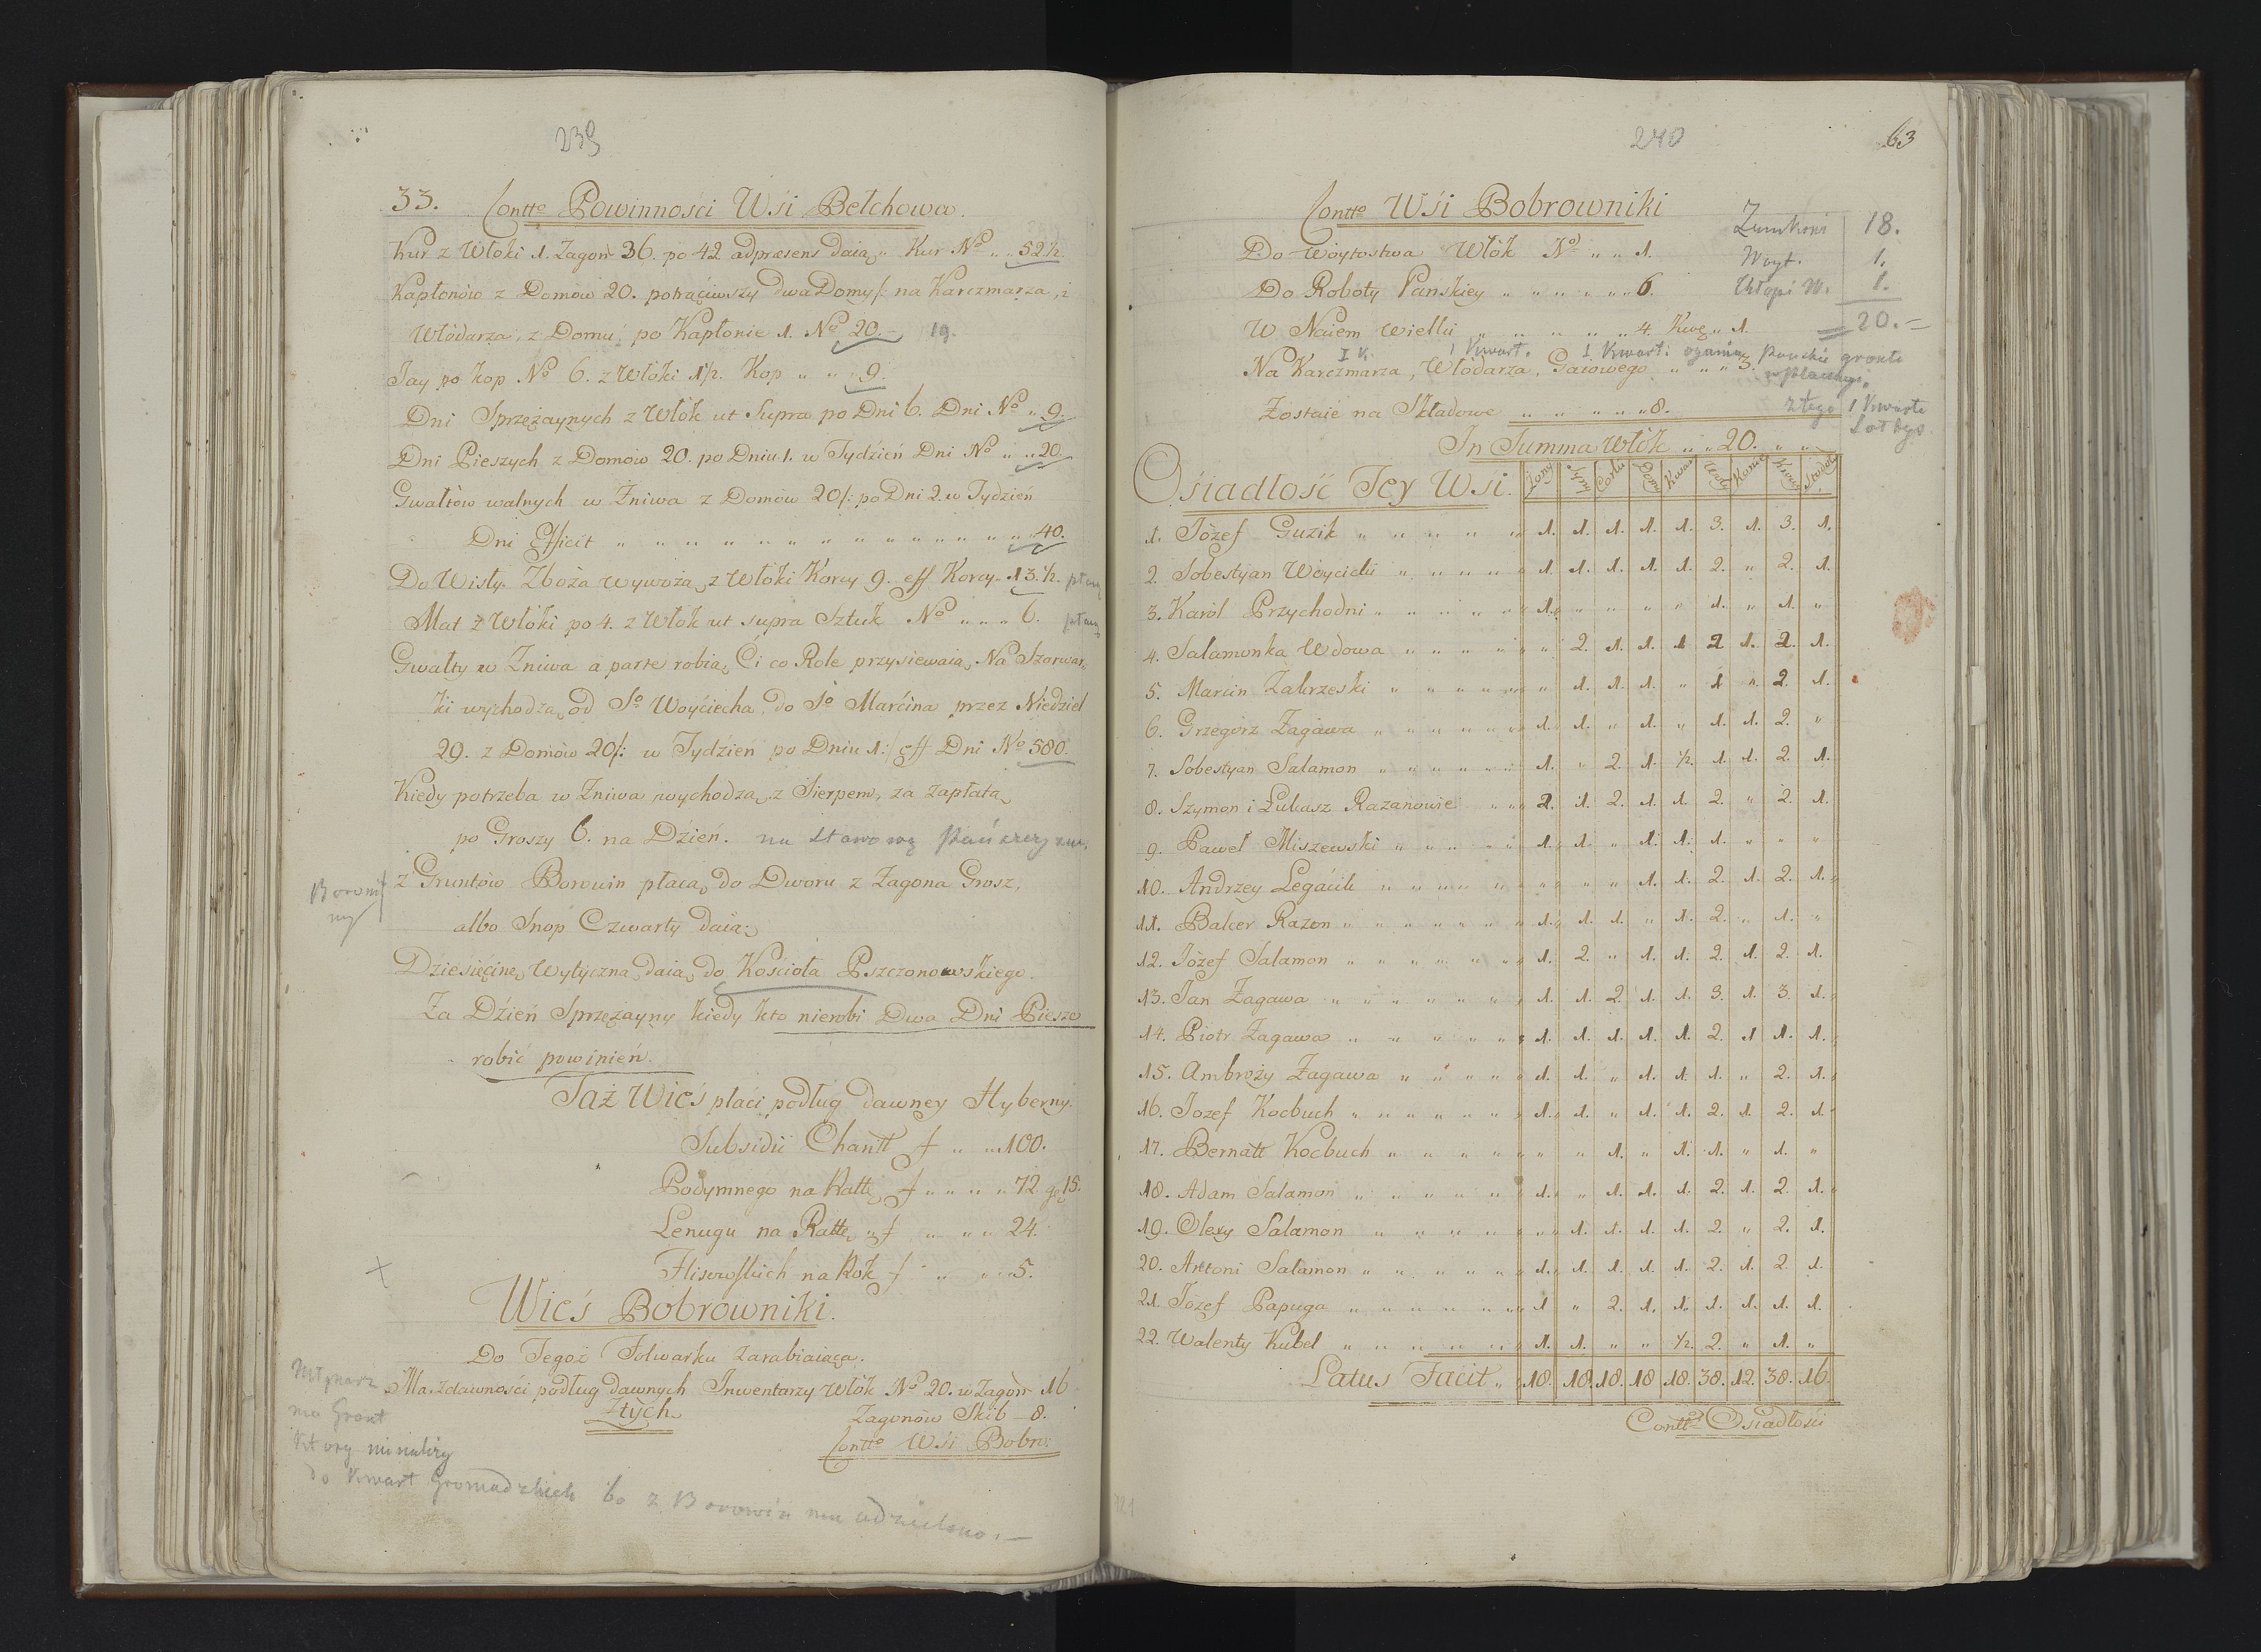 239
33. Contto Powinnosci Wsi Bełchowa.
Kur z Włoki 1. Zagon 36. po 42 adpraesens daią „ Kur No „ „ 52½.
Kapłonów z Domow 20. potrąciwszy dwa Domy /: na Karczmarza, i
Włódarza, z Domu po Kapłonie 1. No 20. – 19.
Jay po kop No 6. z Włoki 1½. Kop „ „ 9.
Dni Sprzężaynych z Włók ut Supra po Dni 6. Dni No „ 9.
Dni Pieszych z Domow 20. po Dniu 1. w Tydzień Dni No „ „ 20.
Gwałtów walnych w Żniwa z Domów 20 /: po Dni 2. w Tydzień
Dni Efficit „ „ „ „ „ „ „ „ „ „ „ „ 40.
Do Wisły Zboża wywożą z Włoki Korcy 9. eff Korcy 13.½.
Mat z Włóki po 4. z Włok ut supra Sztuk No „ „ „ 6.
Gwałty w Żniwa a parte robią, Ci co Role przysiewaią, Na Szarwar„
ki wychodzą od So Woyciecha, do So Marcina przez Niedziel
29. z Domów 20 /: w Tydzien po Dniu 1: / eff Dni No 580.
Kiedy potrzeba w Żniwa wychodzą z Sierpem, za zapłatą
po Groszy 6. na Dzień.
z Gruntów Borowin płacą do Dworu z Zagona Grosz,
albo Snop Czwarty daią.
Dziesięcinę Wytyczną daią do Kościoła Pszczonowskiego.
Za Dzień Sprzężayny kiedy kto nierobi Dwa Dni Piesze
robić powinień.
Taż Wieś płaci podług dawney Hyberny.
Subsidii Charitt f „ „ 100.
Podymnego na Rattę f „ „ „ „ 72. g. 15.
na Rattę „ f „ „ „ 24.
na Rok f „ „ „ 5.
Wieś Bobrowniki.
Do Tegoż Folwarku zarabiaiąca.
Młynarz
ma Gront
Ktory nienależy
do Kwart Gromadzkich bo z Borowin mu udzielono. –
Ma zdawności podług dawnych Inwentarzy Włók No 20. w Zagon 16
Ztych
Zagonów Skib – 8.
Contto Wsi Bobro:
240
63
Contto Wsi Bobrowniki
Do Woytostwa Włók No „ „ 1.
Do Roboty Panskiey „ „ „ „ „ 6.
W Naiem Wielki „ „ „ „ „ 4. Kwę „ 1.
18.
Woyt. 1.
1.
20. –
Na Karczmarza, Włódarza, Gaiowego „ „ „ 3.
Zostaie na Składowe „ „ „ „ „ 8.
In Summa Włók „ „ 20. „ „
Osiadłość Tey Wsi.
1. Józef Guzik „ „ „ „ „ 1. 1. 1. 1. 1. 3. 1. 3. 1.
2. Sobestyan Woycicki „ „ „ „ 1. 1. 1. 1. 1. 2. „ 2. 1.
3. Karol Przychodni „ „ „ „ 1. „ „ „ „ 1. „ 1. „
4. Salamonka Wdowa „ „ „ „ „ 2. 1. 1. 1. 2. 1. 2. 1.
5. Marcin Zakrzeski „ „ „ „ „ 1. 1. 1. „ 1. „ 2. 1.
6. Grzegórz Zagawa „ „ „ „ 1. 1. „ 1. „ 1. 1. 2. „
7. Sobestyan Salamon „ „ „ „ 1. „ 2. 1. ½. 1. 1. 2. 1.
8. Szymon i Łukasz Razanowie „ „ 2. 1. 2. 1. 1. 2. „ 2. 1.
9. Paweł Miszewski „ „ „ „ 1. 1. „ 1. 1. 1. „ „ „
10. Andrzey Legacik „ „ „ „ „ „ „ 1. 1. 2. 1. 2. 1.
11. Balcer Razon „ „ „ „ „ 1. 1. 1. „ 1. 2. „ 1. „
12. Józef Salamon „ „ „ „ „ 1. 2. „ 1. 1. 2. 1. 2. 1.
13. Jan Zagawa „ „ „ „ „ 1. 1. 2. 1. 1. 3. 1. 3. 1.
14. Piotr Zagawa „ „ „ „ „ 1. 1. 1. 1. 1. 2. 1 1. 1.
15. Ambroży Zagawa „ „ „ „ 1. 1. „ 1. 1. 1. „ 2. 1.
16. Jozef Kocbuch „ „ „ „ „ 1. 1. „ 1. 1. 2. 1. 2. 1.
17. Bernatt Kocbuch „ „ „ „ „ „ 1. „ 1. 1. „ 1. „
18. Adam Salamon „ „ „ „ „ 1. „ 1. 1. 1. 2. 1. 2. 1.
19. Olexy Salamon „ „ „ „ „ „ 1. 1. 1. 1. 2. „ 2. 1.
20. Antoni Salamon „ „ „ „ „ 1. 1. 1. 1. 1. 2. 1. 2. 1.
21. Józef Papuga „ „ „ „ „ 1 „ 2. 1. 1. 1. 1. 1. 1.
22. Walenty Kubel „ „ „ „ „ 1. 1. „ „ ½. 2. „ 1. „
Latus Facit „ 18. 18. 18. 18 18. 38. 12. 38. 16.
Contto Osiadłości